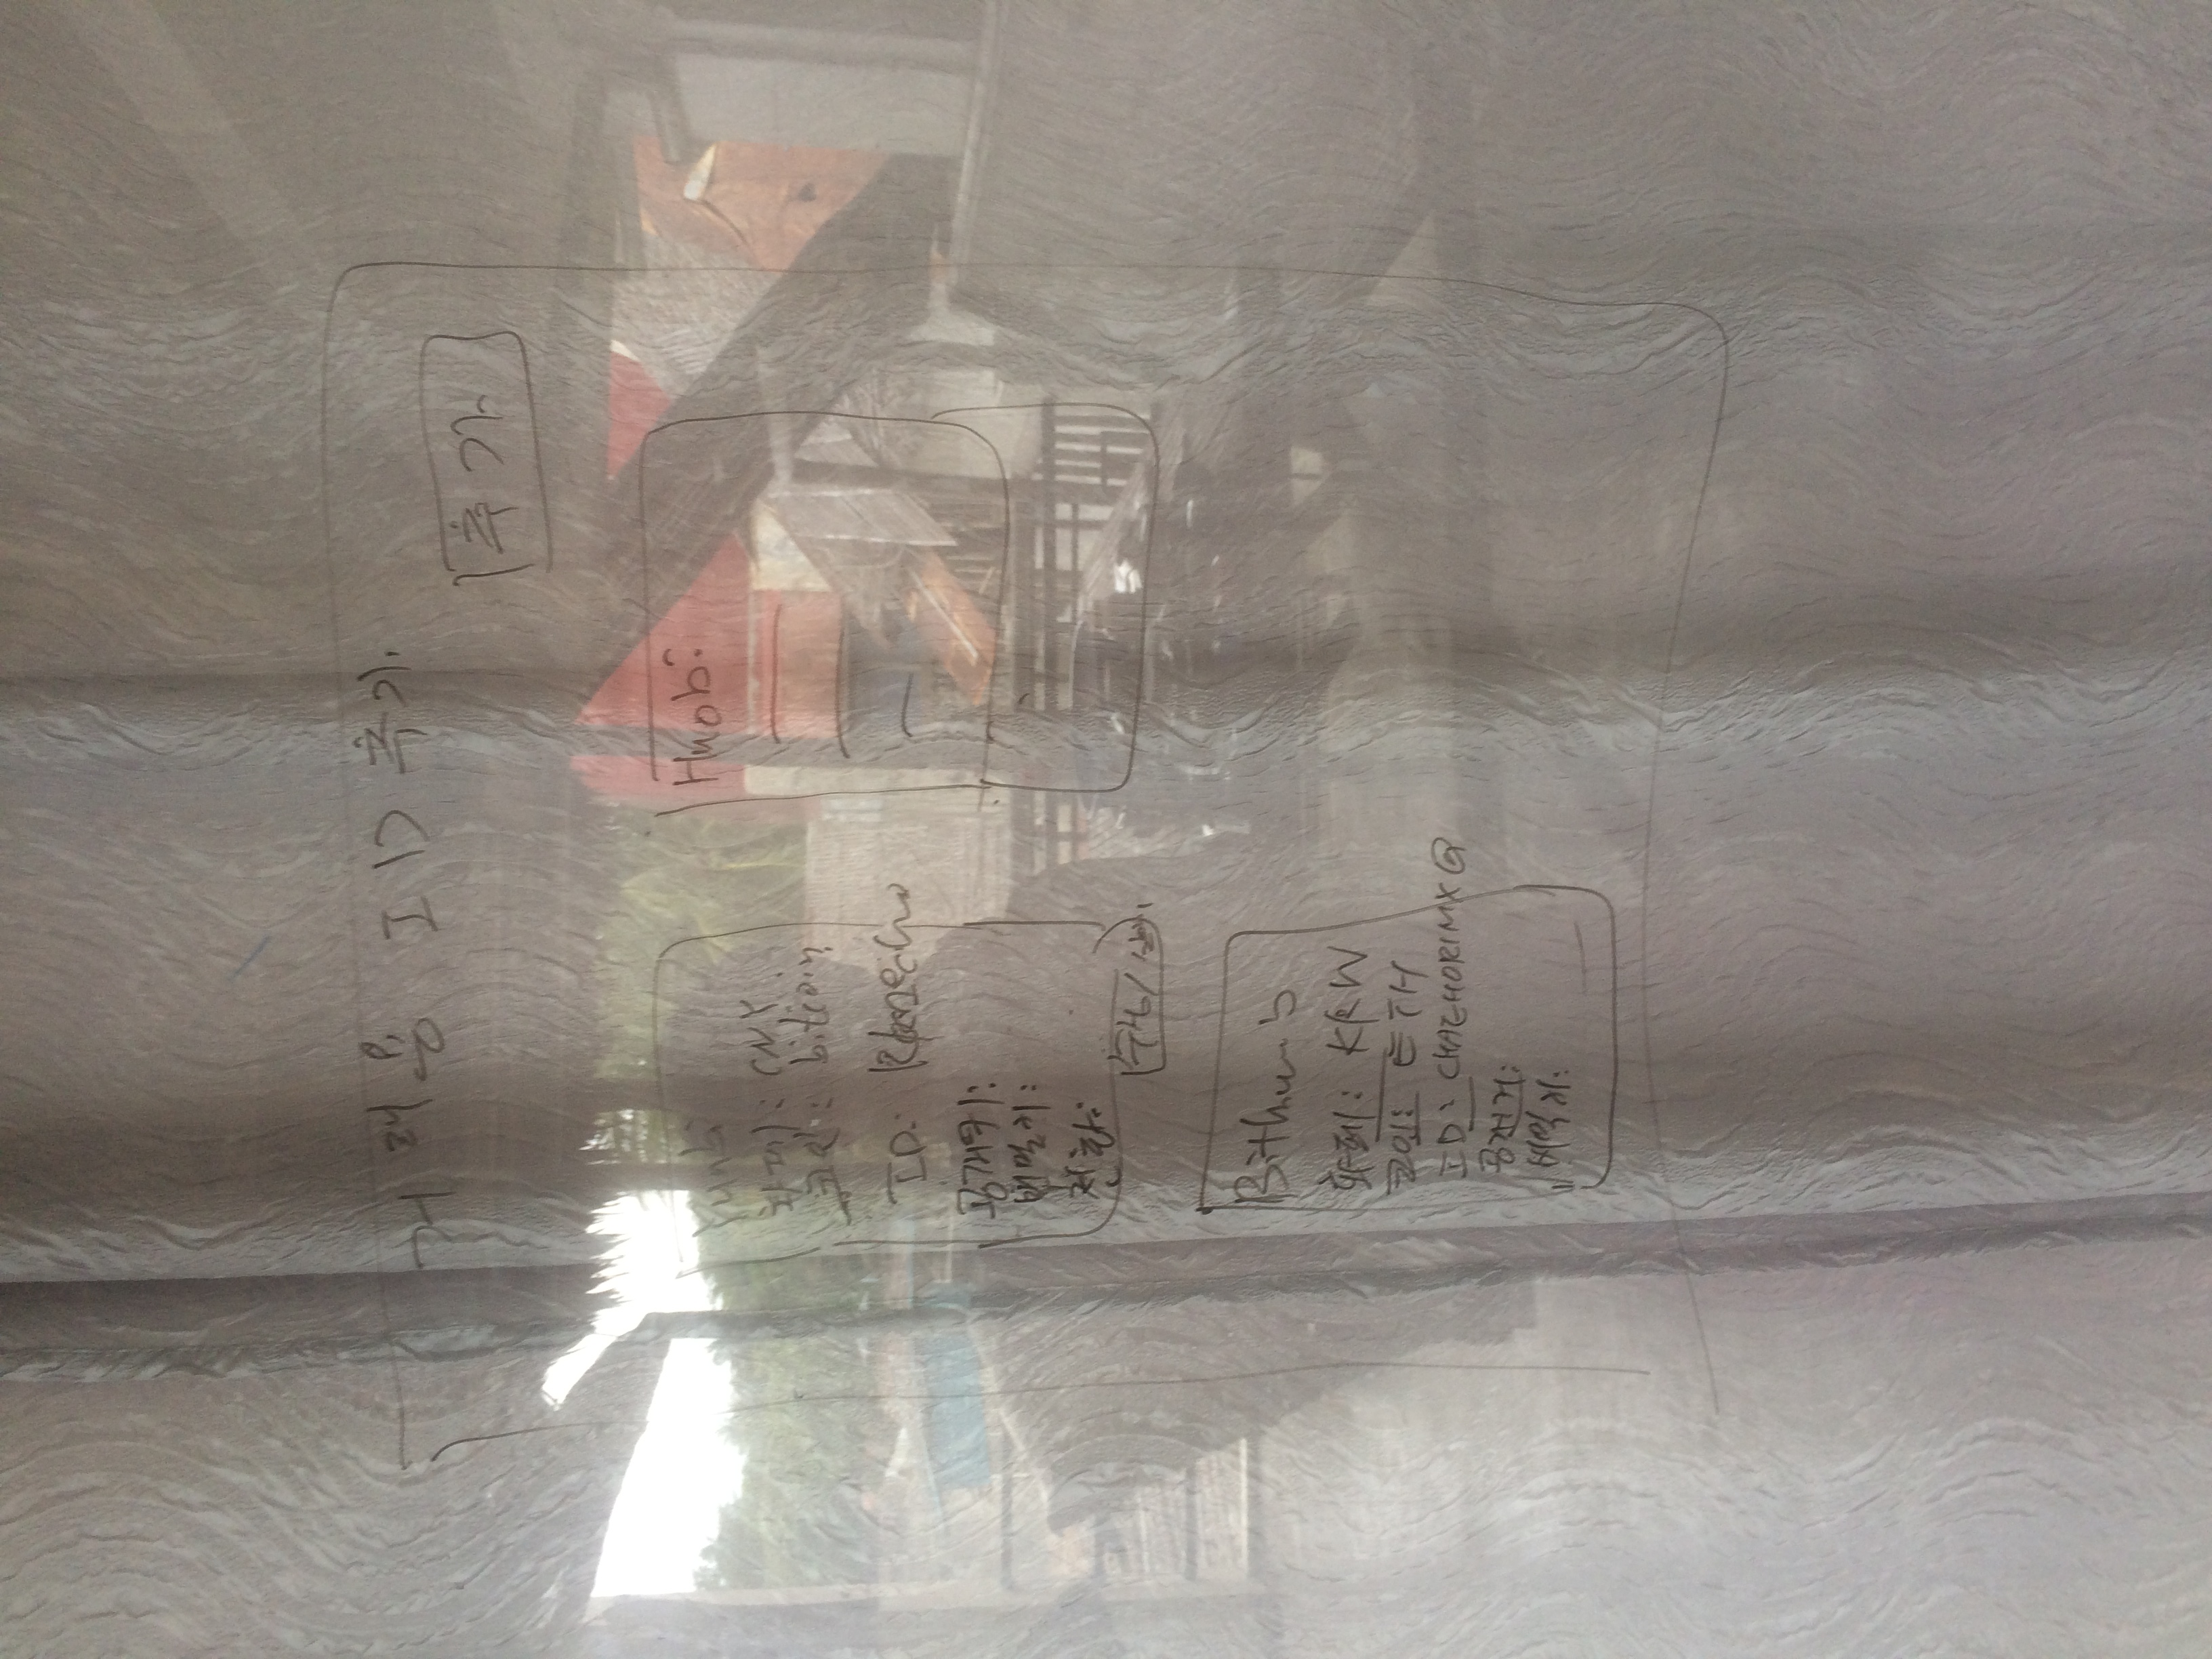 거래용 ID 추가
추가
Yunbi
화폐: CNY
코인: bitcoin
ID:
공개키:
비밀키:
전화:
Huobi
Bithumb
화폐: KRW
코인: ETH
ID: CHAEHORIMX@
공개키:
비밀키: